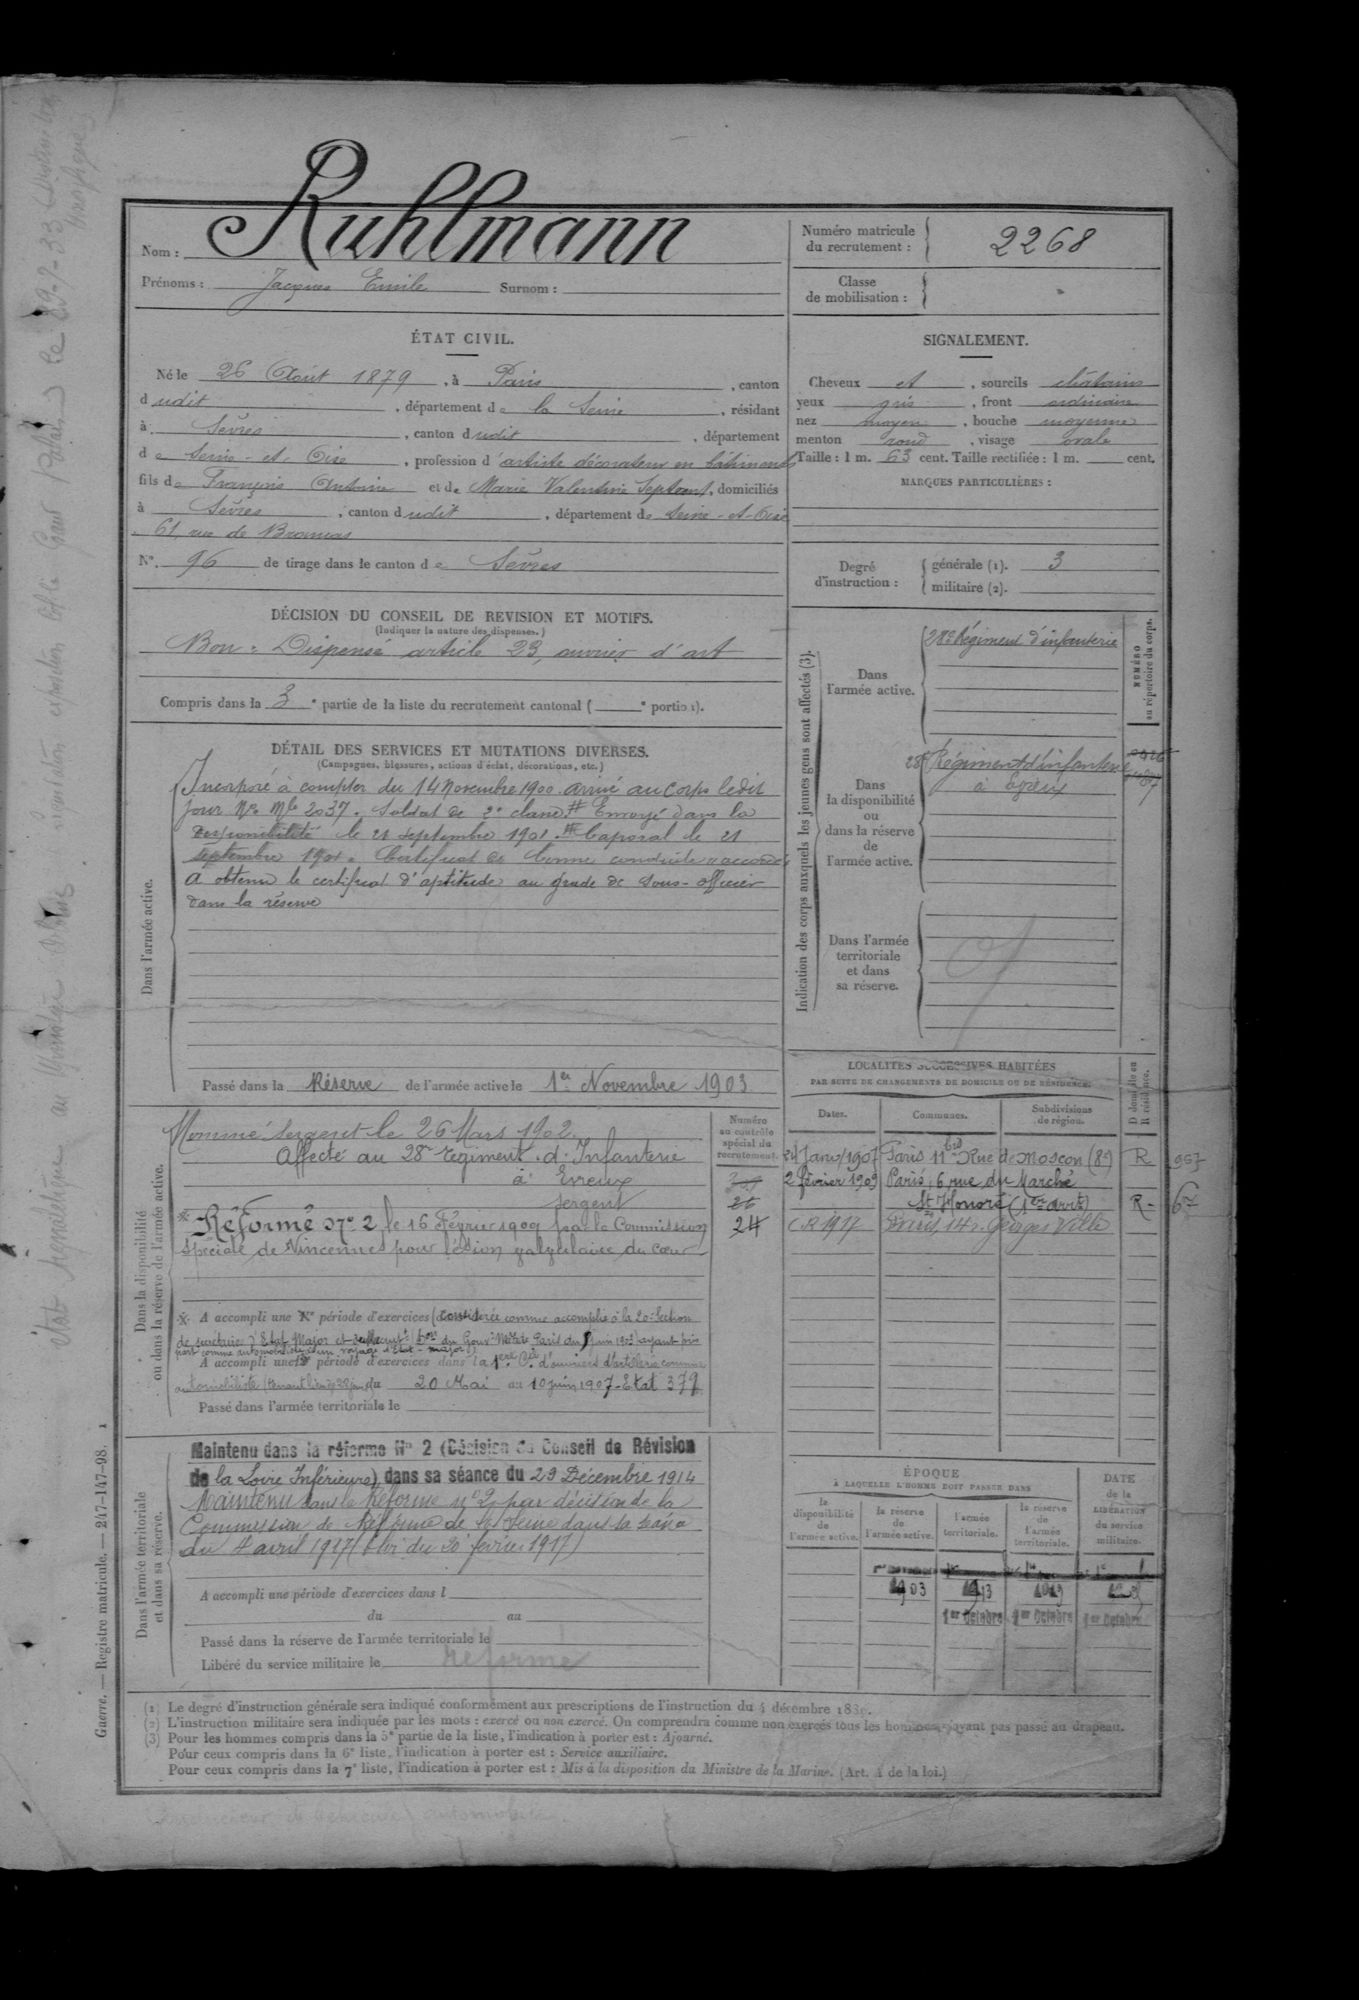 Nom : Ruhlmann
Prénoms : Jacques Emile Surnom :
Numéro matricule du recrutement : 2268
Classe de mobilisation :
ÉTAT CIVIL.
Né le 26 Août 1879, à Paris, canton
dudit, département de la Seine, résidant
à Sèvres, canton dudit, département
de Seine-et-Oise, profession d'artiste décorateur en bâtiments
fils de François Antoine et de Marie Valentine, domiciliés
à Sèvres, canton dudit, département de Seine-et-Oise
61, rue de
N° 96 de tirage dans le canton de Sèvres
SIGNALEMENT.
Cheveux et, sourcils châtains
yeux gris, front ordinaire
nez moyen, bouche moyenne
menton rond, visage ovale
Taille : 1 m. 63 cent. Taille rectifiée : 1 m. cent.
MARQUES PARTICULIÈRES :
Degré d'instruction : générale (1). 3
militaire (2).
DÉCISION DU CONSEIL DE REVISION ET MOTIFS.
(Indiquer la nature des dispenses.)
Bon : Dispensé article 23, ouvrier d'art
Compris dans la 3e partie de la liste du recrutement cantonal ( e portion).
DÉTAIL DES SERVICES ET MUTATIONS DIVERSES.
(Campagnes, blessures, actions d'éclat, décorations, etc.)
Dans l'armée active.
Incorporé à compter du 14 Novembre 1900 arrivé au Corps ledit
jour No Mle 2037. Soldat de 2e classe # Envoyé dans la
disponibilité le 21 septembre 1901. # Caporal le 21
septembre 1901. Certificat de bonne conduite "accordé"
A obtenu le certificat d'aptitude au grade de sous-officier
dans la réserve
Passé dans la Réserve de l'armée active le 1er Novembre 1903
Indication des corps auxquels les jeunes gens sont affectés (3).
NUMÉRO au répertoire du corps.
Dans l'armée active.
28e Régiment d'infanterie
Dans la disponibilité ou dans la réserve de l'armée active.
28e Régiment d'infanterie
à Evreux
Dans l'armée territoriale et dans sa réserve.
Dans la disponibilité ou dans la réserve de l'armée active.
Numéro au contrôle spécial du recrutement.
Nommé Sergent le 26 Mars 1902.
Affecté au 28e régiment d'Infanterie
à Evreux
Sergent
* Réformé No 2 le 16 Février 1909 par la Commission
spéciale de Vincennes pour lésion valvulaire du cœur
24
A accompli une 1e période d'exercices (considérée comme accomplie à la 20e Section
A accompli une 2e période d'exercices dans la 1ere Cie d'ouvriers d'artillerie comme
automobiliste du 20 Mai au 10 juin 1907 - Etat 379
Passé dans l'armée territoriale le
LOCALITÉS SUCCESSIVES HABITÉES
PAR SUITE DE CHANGEMENTS DE DOMICILE OU DE RÉSIDENCE.
Dates. Communes. Subdivisions de région. D domicile ou R résidence.
Janv 1907 Paris 11 bis Rue de Moscou (8e) R
2 février 1909 Paris, 6, rue du Marché
St Honoré (1er arrt) R -
CR 1917 Paris, 14 r. Georges Ville
Dans l'armée territoriale et dans sa réserve.
Maintenu dans la réforme N° 2 (Décision du Conseil de Révision
de la Loire Inférieure) dans sa séance du 29 Décembre 1914
Maintenu dans la Réforme no 2 par décision de la
Commission de Réforme de la Seine dans sa séance
du 4 avril 1917 (Loi du 20 février 1917)
A accompli une période d'exercices dans l
du au
Passé dans la réserve de l'armée territoriale le
Libéré du service militaire le réformé
ÉPOQUE
À LAQUELLE L'HOMME DOIT PASSER DANS
la disponibilité de l'armée active.
la réserve de l'armée active.
l'armée territoriale.
la réserve de l'armée territoriale.
DATE de la LIBÉRATION du service militaire.
1903 1913
1er Octobre 1er Octobre 1er Octobre
(1) Le degré d'instruction générale sera indiqué conformément aux prescriptions de l'instruction du 4 décembre 1889.
(2) L'instruction militaire sera indiquée par les mots : exercé ou non exercé. On comprendra comme non exercés tous les hommes n'ayant pas passé au drapeau.
(3) Pour les hommes compris dans la 5e partie de la liste, l'indication à porter est : Ajourné.
Pour ceux compris dans la 6e liste, l'indication à porter est : Service auxiliaire.
Pour ceux compris dans la 7e liste, l'indication à porter est : Mis à la disposition du Ministre de la Marine. (Art. 4 de la loi.)
Guerre. — Registre matricule. — 247-147-98. 1